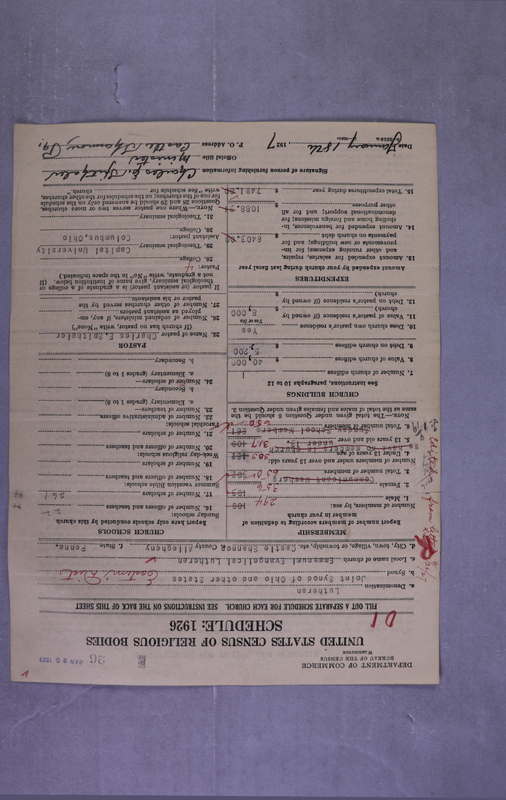 DEPARTMENT OF COMMERCE
BUREAU OF THE CENSUS
WASHINGTON
26
JAN 20 1927
UNITED STATES CENSUS OF RELIGIOUS BODIES
SCHEDULE: 1926
FILL OUT A SEPARATE SCHEDULE FOR EACH CHURCH. SEE INSTRUCTIONS ON THE BACK OF THIS SHEET
a. Denomination Lutheran
Joint Synod of Ohio and other States
b. Synod Eastern Dist
c. Local name of church Emanuel Evangelical Lutheran
d. City, town, village, or township, etc. Castle Shannon County Allegheny State Penna.
MEMBERSHIP
Report number of members according to definition of member in your church
Number of members, by sex:
1. Male 294
2. Female 356
3. Total number of members 650
Communicant Members
Number of members under and over 13 years old:
4. Under 13 years of age
5. 13 years old and over 317
6. Total number of members 650
Sunday School Members
NOTE.—The total given under Question 6 should be the same as the total of males and females given under Question 3.
CHURCH BUILDINGS
See Instructions, paragraphs 10 to 12
7. Number of church edifices 1
8. Value of church edifices $ 40,000
9. Debt on church edifices $ 5,200
10. Does church own pastor's residence Yes
Yes or No
11. Value of pastor's residence (if owned by church) $ 8,000
12. Debt on pastor's residence (if owned by church) $
EXPENDITURES
Amount expended by your church during last fiscal year
13. Amount expended for salaries, repairs, and other running expenses; for improvements or new buildings; and for payments on church debt $ 6403.00
14. Amount expended for benevolences, including home and foreign missions; for denominational support; and for all other purposes $ 1088
15. Total expenditures during year $ 7491.00
CHURCH SCHOOLS
Report here only schools conducted by this church
Sunday schools:
16. Number of officers and teachers
17. Number of scholars 261
Summer vacation Bible schools:
18. Number of officers and teachers
19. Number of scholars
Week-day religious schools:
20. Number of officers and teachers
21. Number of scholars
Parochial schools:
22. Number of administrative officers
23. Number of teachers—
a. Elementary (grades 1 to 8)
b. Secondary
24. Number of scholars—
a. Elementary (grades 1 to 8)
b. Secondary
PASTOR
25. Name of pastor Charles E. Spithaler
(If church has no pastor, write "None")
26. Number of ordained ministers, if any, employed as assistant pastors
27. Number of other churches served by the pastor or his assistants
If pastor (or assistant pastor) is a graduate of a college or theological seminary, give name of institution below. (If not a graduate, write "No" in the space indicated.)
Pastor:
28. College
29. Theological seminary Capital University
Columbus, Ohio
Assistant pastor:
30. College
31. Theological seminary
Signature of person furnishing information
Official title Minister
P. O. Address Castle Shannon, Pa.
Date January 18th, 1927